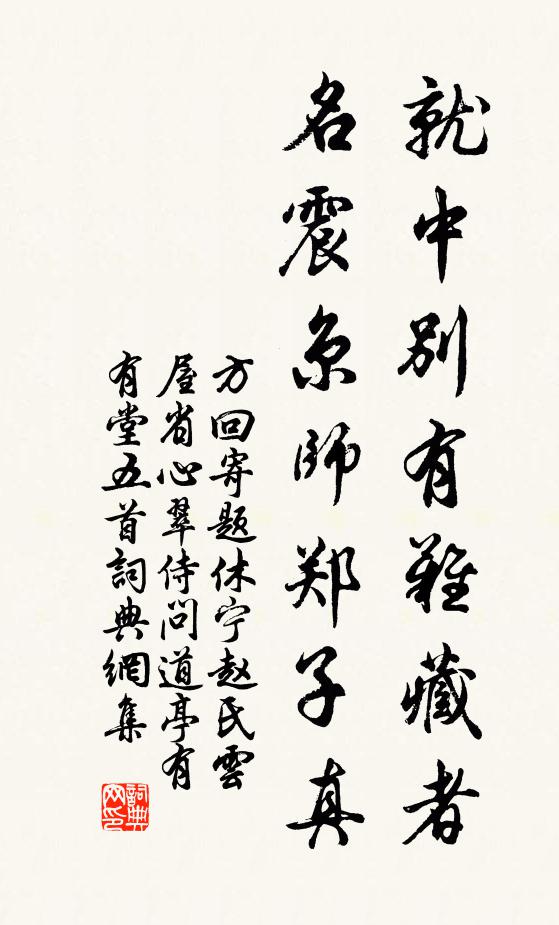 就中别有難藏者
名震京師郑子真
方回寄題休宁赵氏雲
屋省心翠侍问道亭有
有堂五首詞典網集
詞典网印